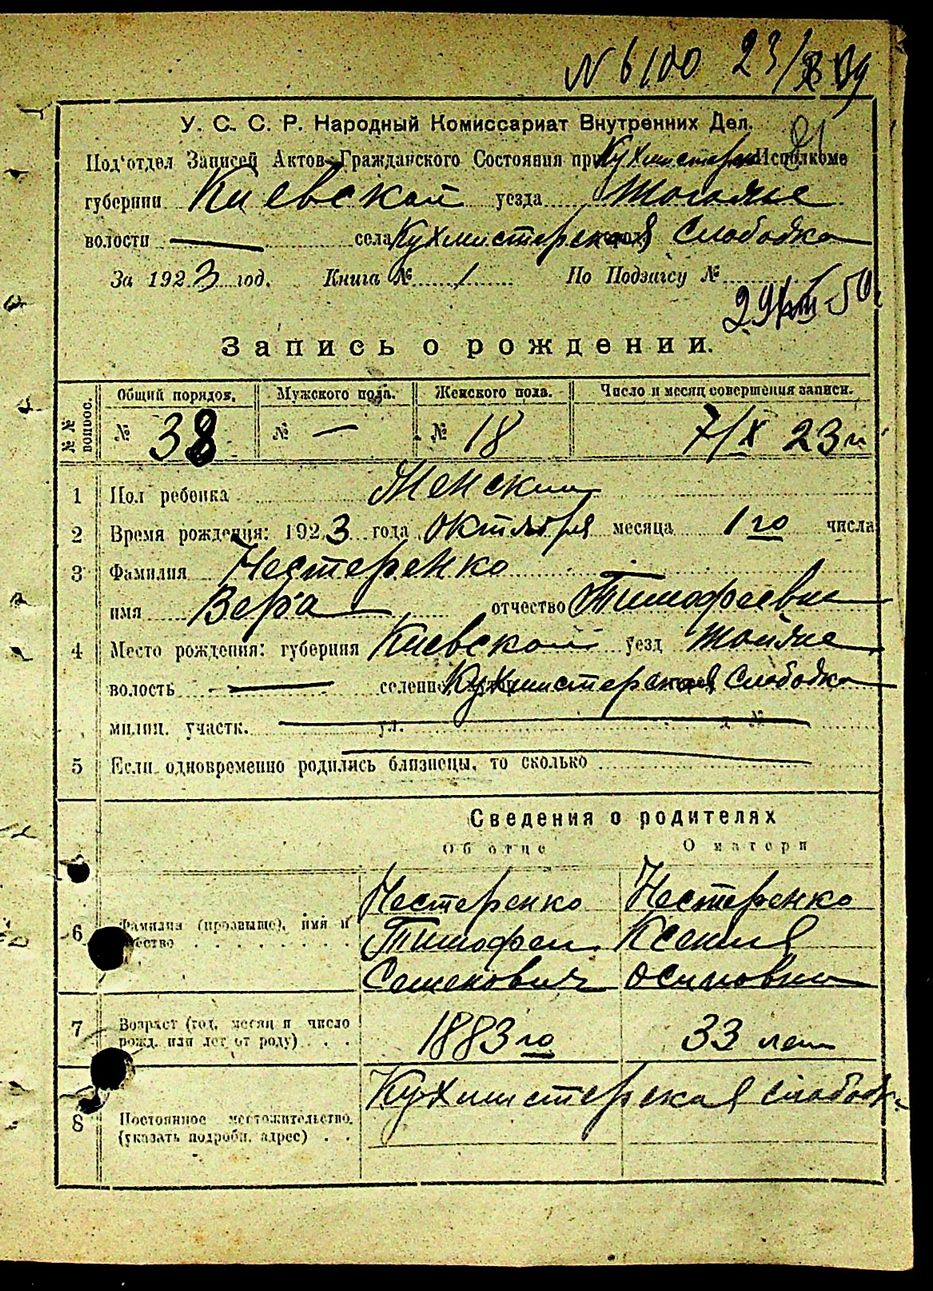 N 6100 23/
21
У. С. С. Р. Народный Комиссариат Внутренних Дел.
Под'отдел Записей Актов Гражданского Состояния при Кухмистерск Исполкоме
губернии Киевской уезда
волости — села Кухмистерская Слободка
За 1923 год. Книга № 1 По Подзагсу №
29/VIII-50
Запись о рождении.
№№ вопрос. Общий порядов. Мужского пола. Женского пола. Число и месяц совершения записи.
№ 38 № — № 18 7/X 23 г
1 Пол ребенка Женский
2 Время рождения: 1923 года Октября месяца 1го числа
3 Фамилия Нестеренко
имя Вера отчество Тимофеевна
4 Место рождения: губерния Киевской уезд
волость — селение Кухмистерская Слободка
милиц. участк. ул. д №
5 Если одновременно родились близнецы, то сколько
Сведения о родителях
Об отце О матери
6 Фамилия (прозвище), имя и Нестеренко Нестеренко
отчество Тимофей Ксения
Семенович Осиповна
7 Возраст (год, месяц и число 1883го 33 лет
рожд. или лет от роду)
8 Кухмистерская слободка
Постоянное местожительство,
(указать подробн. адрес)